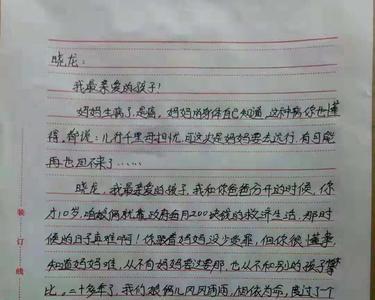 晓龙:
我最亲爱的孩子!
妈妈生病了,是癌,妈妈的身体自己知道,这种病你也懂
得,都说:儿行千里母担忧,可这次是妈妈要去远行,有可能
再也回不来了……
晓龙,我最亲爱的孩子,我和你爸爸分手的时候,你
才10岁,咱娘俩就靠政府每月200块钱的救济生活,那时
候的日子真难啊!你跟着妈妈没少受罪,但你很懂事,
知道妈妈难,从不向妈妈要这要那,也从不和别的孩子攀
比,二十多年了,我们娘俩儿风风雨雨,相依为命,度过了一
装订线